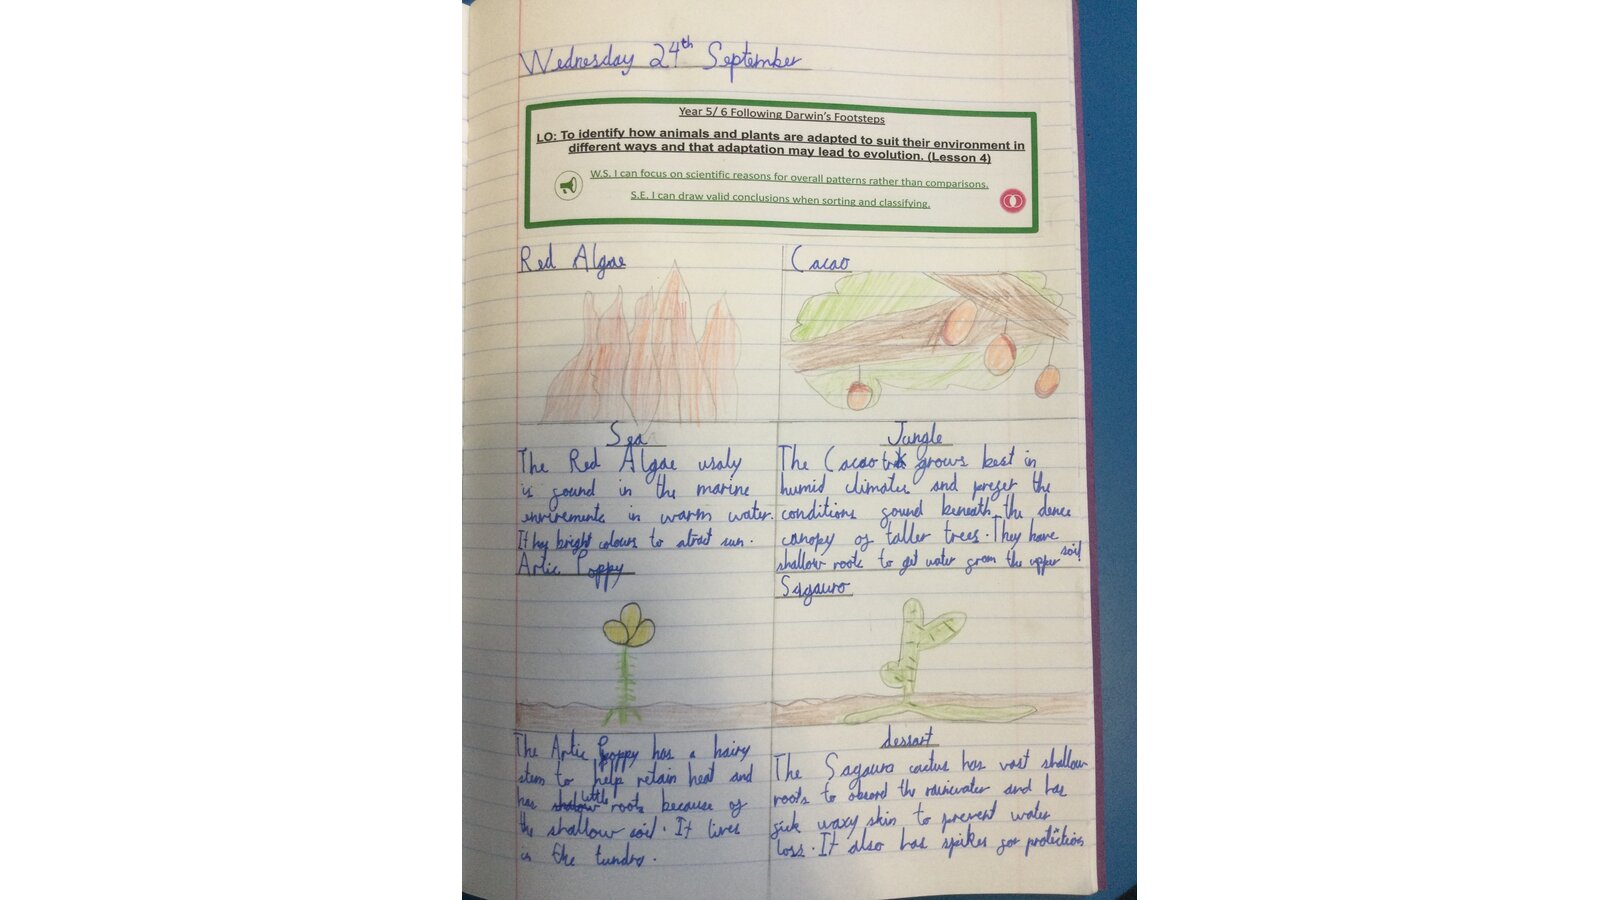 Wednesday 24th September
Year 5/ 6 Following Darwin's Footsteps
LO: To identify how animals and plants are adapted to suit their environment in
different ways and that adaptation may lead to evolution. (Lesson 4)
W.S. I can focus on scientific reasons for overall patterns rather than comparisons.
S.E. I can draw valid conclusions when sorting and classifying.
Red Algae
Sea
The Red Algae usaly
is found in the marine
envirements in warm water.
It has bright colours to atract sun.
Cacao
Jungle
The Cacao grows best in
humid climates and prefer the
conditions found beneath the dence
canopy of taller trees. They have
shallow roots to get water from the upper soil
Artic Poppy
The Artic Poppy has a hairy
stem to help retain heat and
has little roots because of
the shallow soil. It lives
in the tundra.
Sagauro
dessart
The Sagauro cactus has vast shallow
roots to the rainwater and has
waxy skin to prevent water
loss. It also has spikes for protection